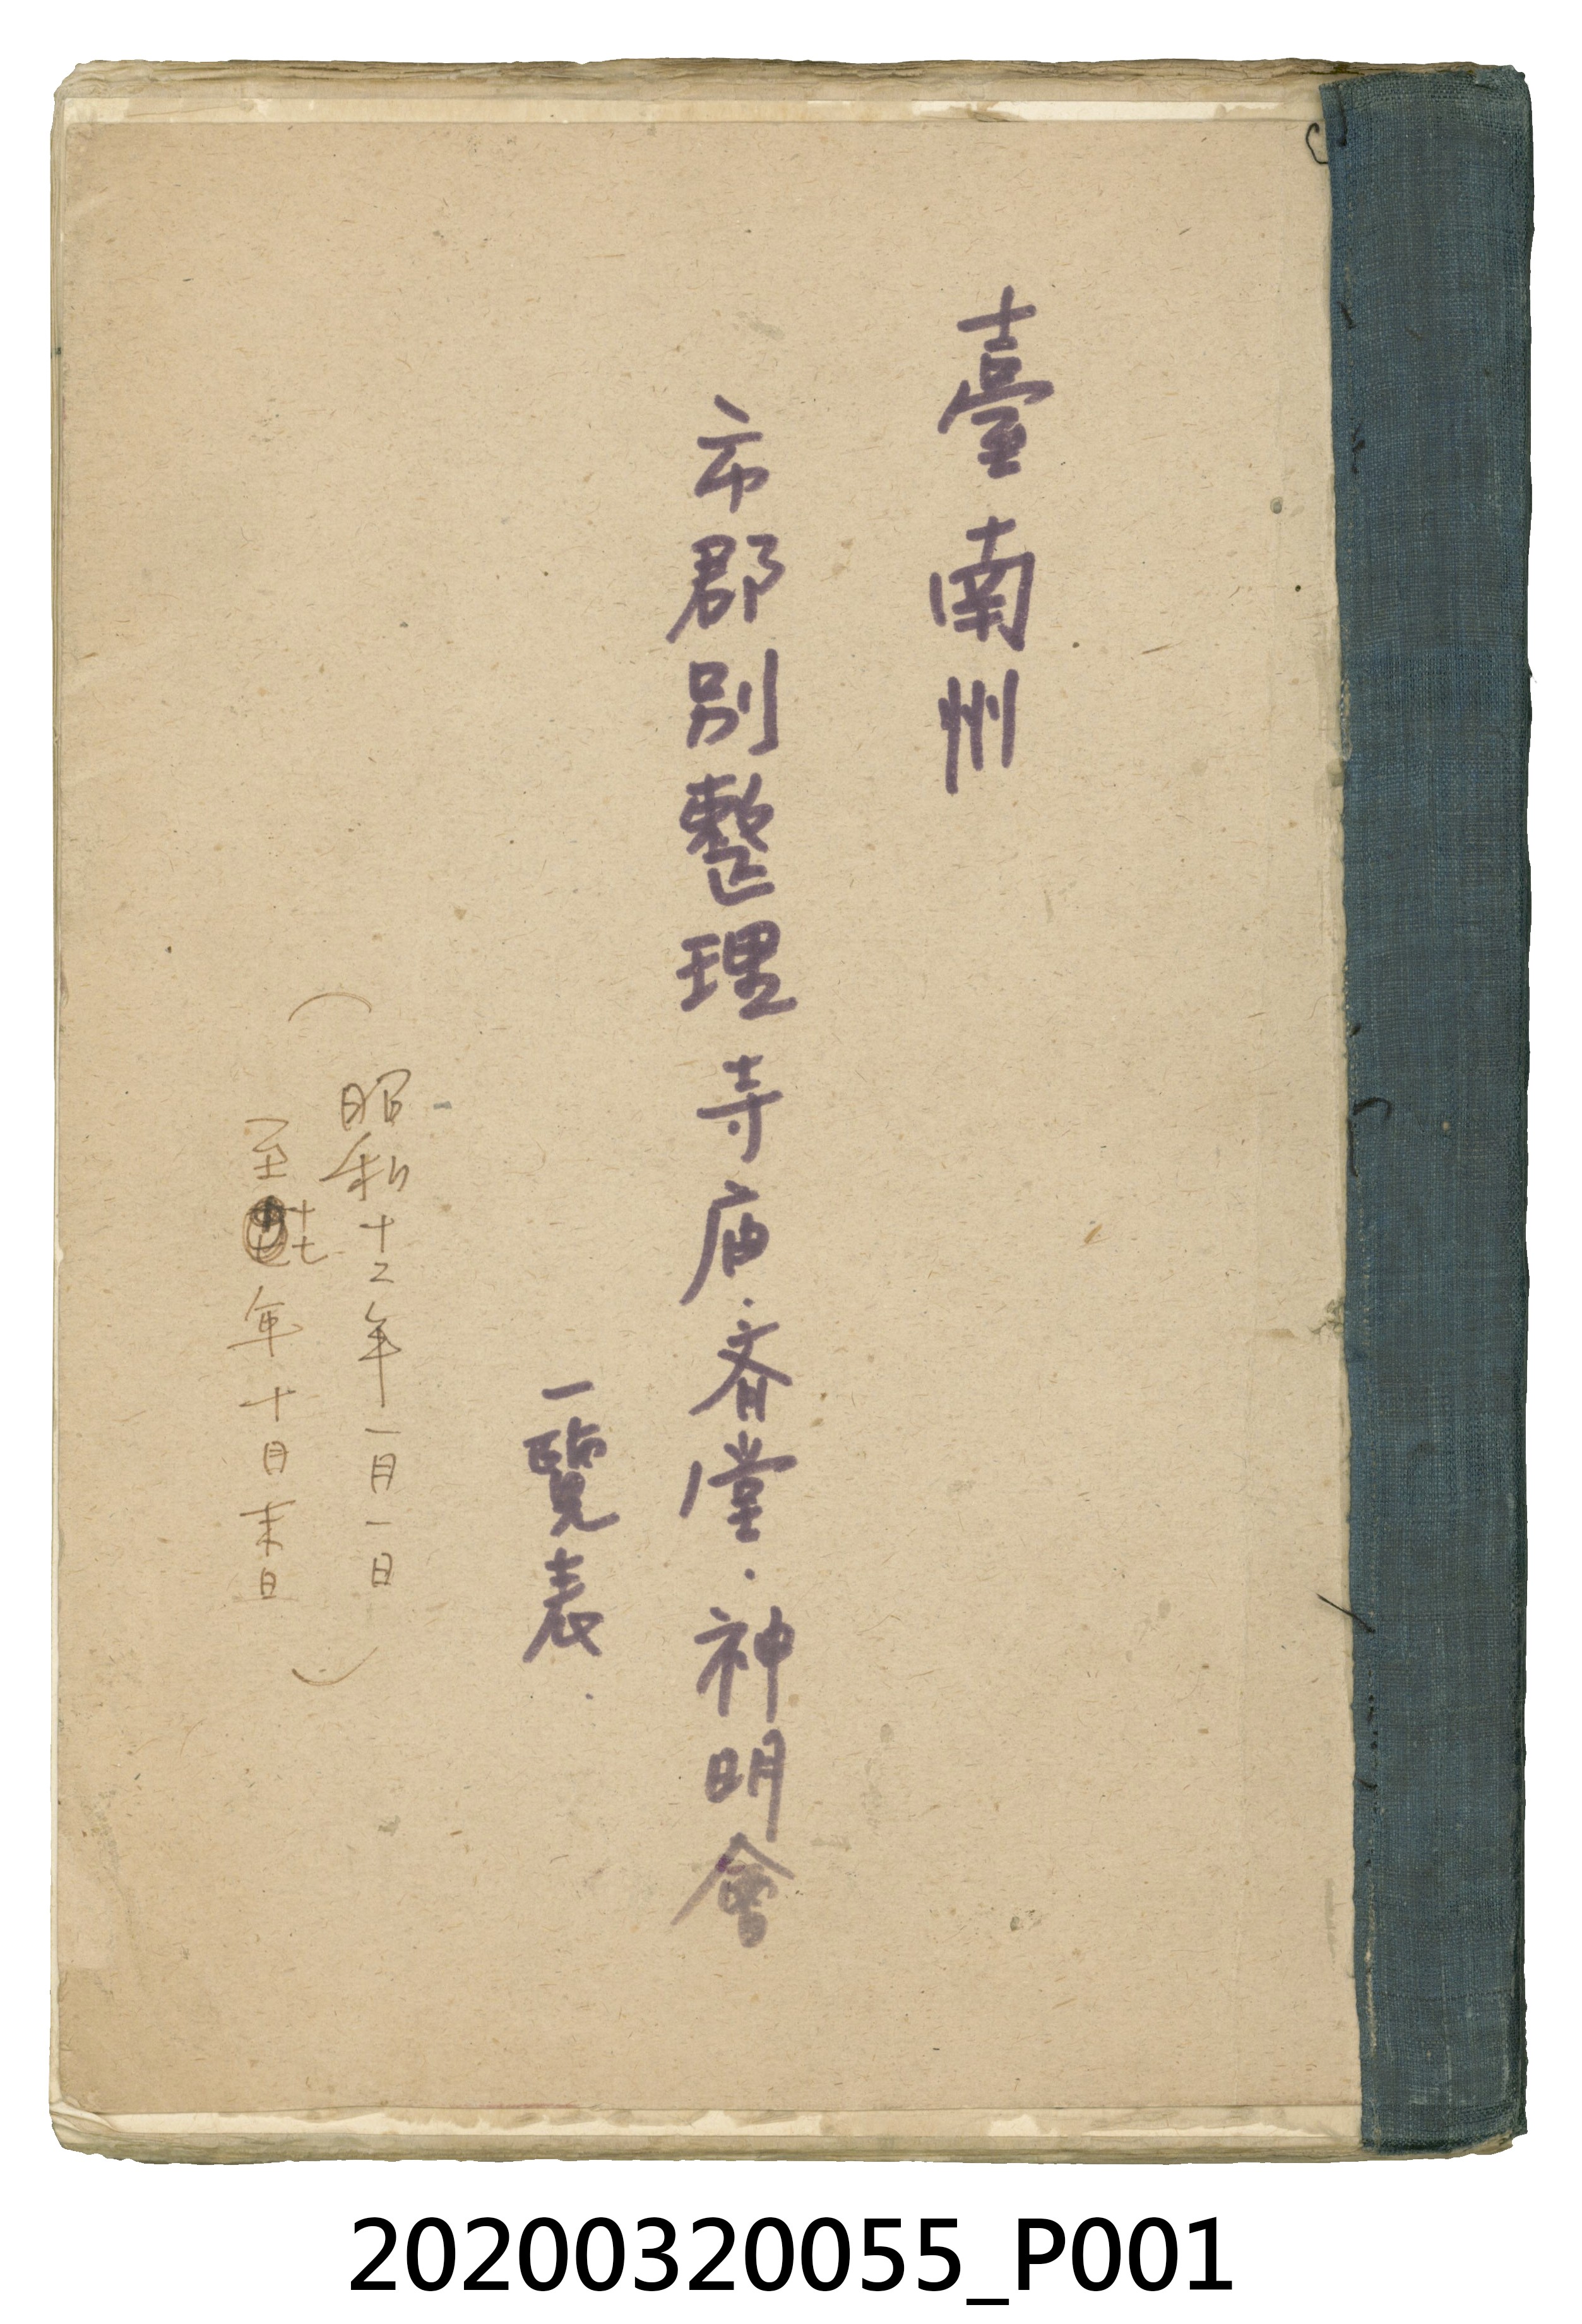 臺南州
市郡別整理寺庙·斎堂·神明會
一覽表.
(昭和十二年一月一日
至十七年十月末日)
20200320055_P001